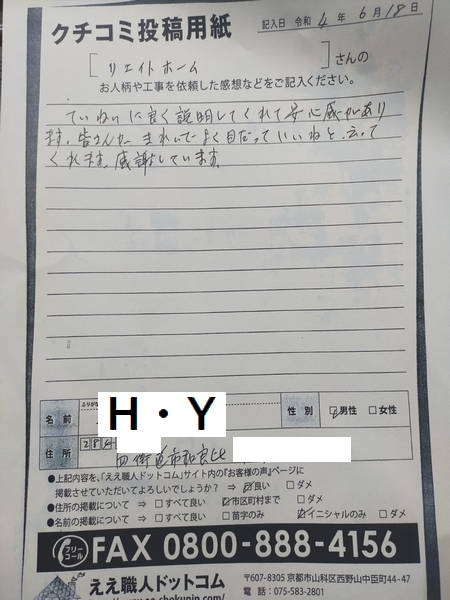 クチコミ投稿用紙
記入日 令和 4 年 6 月 18 日
[ リエイトホーム ] さんの
お人柄や工事を依頼した感想などをご記入ください。
ていねいに良く説明してくれて安心感があり
ます。皆さんが きれいで よく目だって いいねと 云って
くれます。感謝しています。
ふりがな
名前 H・Y 性別 ☑男性 □女性
住所 284
四街道市和良比
●上記内容を、「ええ職人ドットコム」サイト内の『お客様の声』ページに
掲載させていただいてよろしいでしょうか? ⇒ ☑良い □ダメ
●住所の掲載について ⇒ □すべて良い ☑市区町村まで □ダメ
●名前の掲載について ⇒ □すべて良い □苗字のみ ☑イニシャルのみ □ダメ
フリーコール FAX 0800-888-4156
ええ職人ドットコム 〒607-8305 京都市山科区西野山中臣町44-47
電話:075-583-2801